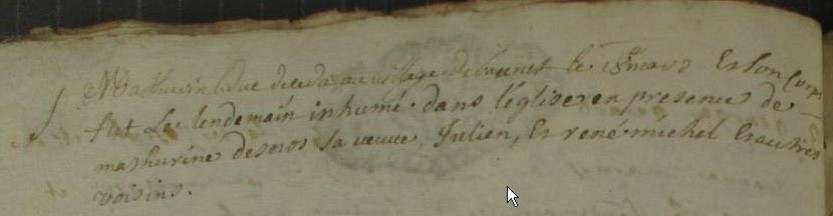 Mathurin deceda au village de le 18e mars Et son Corps
fut Le lendemain inhumé dans l'église en presence de
mathurine desnos sa veuve, Julien, Et rené michel Et autres
voisins.